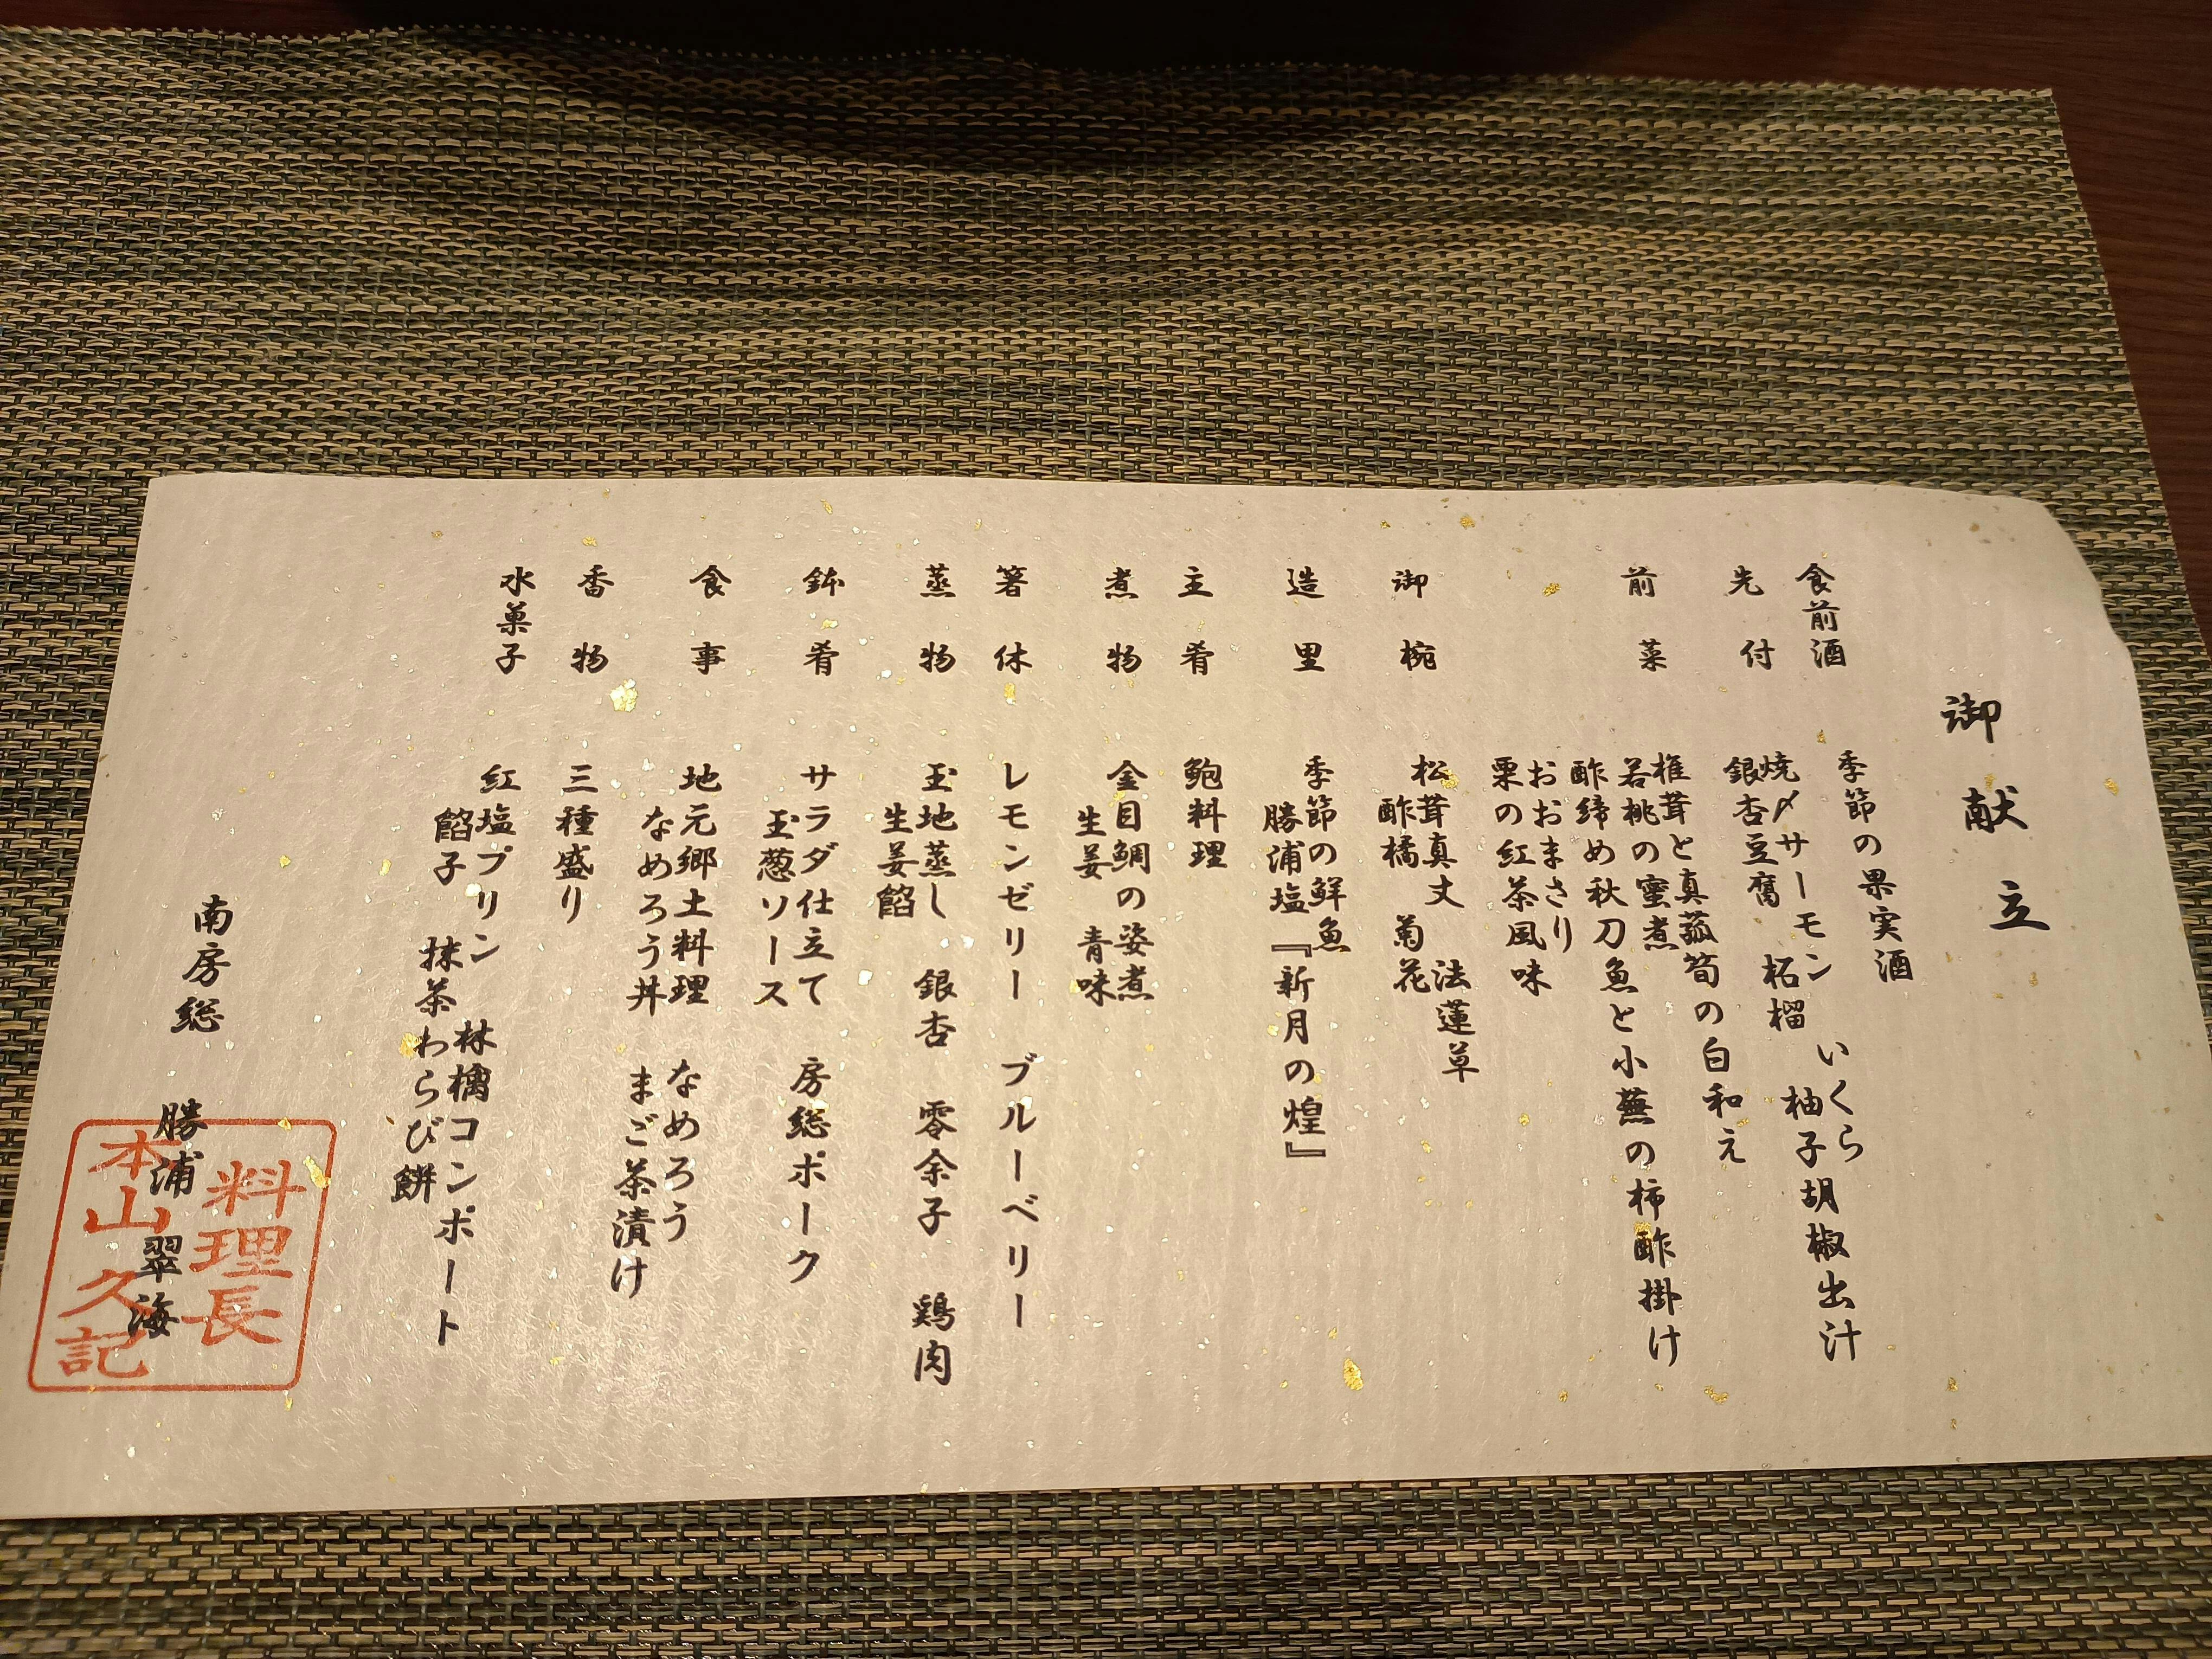 御献立
食前酒 季節の果実酒
先付 焼〆サーモン いくら 柚子胡椒出汁
銀杏豆腐 柘榴
前菜 椎茸と真菰筍の白和え
若桃の蜜煮
酢締め秋刀魚と小蕪の柿酢掛け
おおまさり
栗の紅茶風味
御椀 松茸真丈 法蓮草
酢橘 菊花
造里 季節の鮮魚
勝浦塩『新月の煌』
主肴 鮑料理
煮物 金目鯛の姿煮
生姜 青味
箸休 レモンゼリー ブルーベリー
蒸物 玉地蒸し 銀杏 零余子 鶏肉
生姜餡
鉢肴 サラダ仕立て 房総ポーク
玉葱ソース
食事 地元郷土料理 なめろう
なめろう丼 まご茶漬け
香物 三種盛り
水菓子 紅塩プリン 林檎コンポート
餡子 抹茶わらび餅
南房総 勝浦 翠海
料理長
本山久記